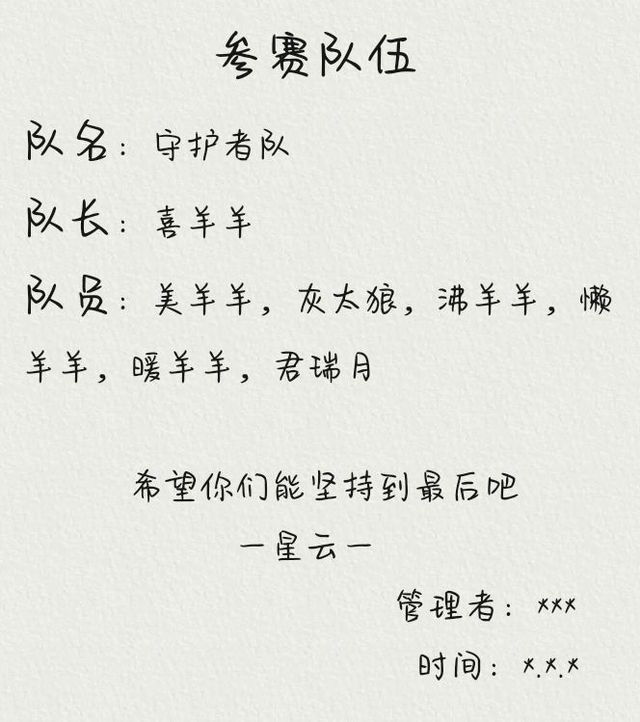 参赛队伍
队名：守护者队
队长：喜羊羊
队员：美羊羊，灰太狼，沸羊羊，懒
羊羊，暖羊羊，君瑞月
希望你们能坚持到最后吧
一星云一
管理者：xxx
时间：x.x.x